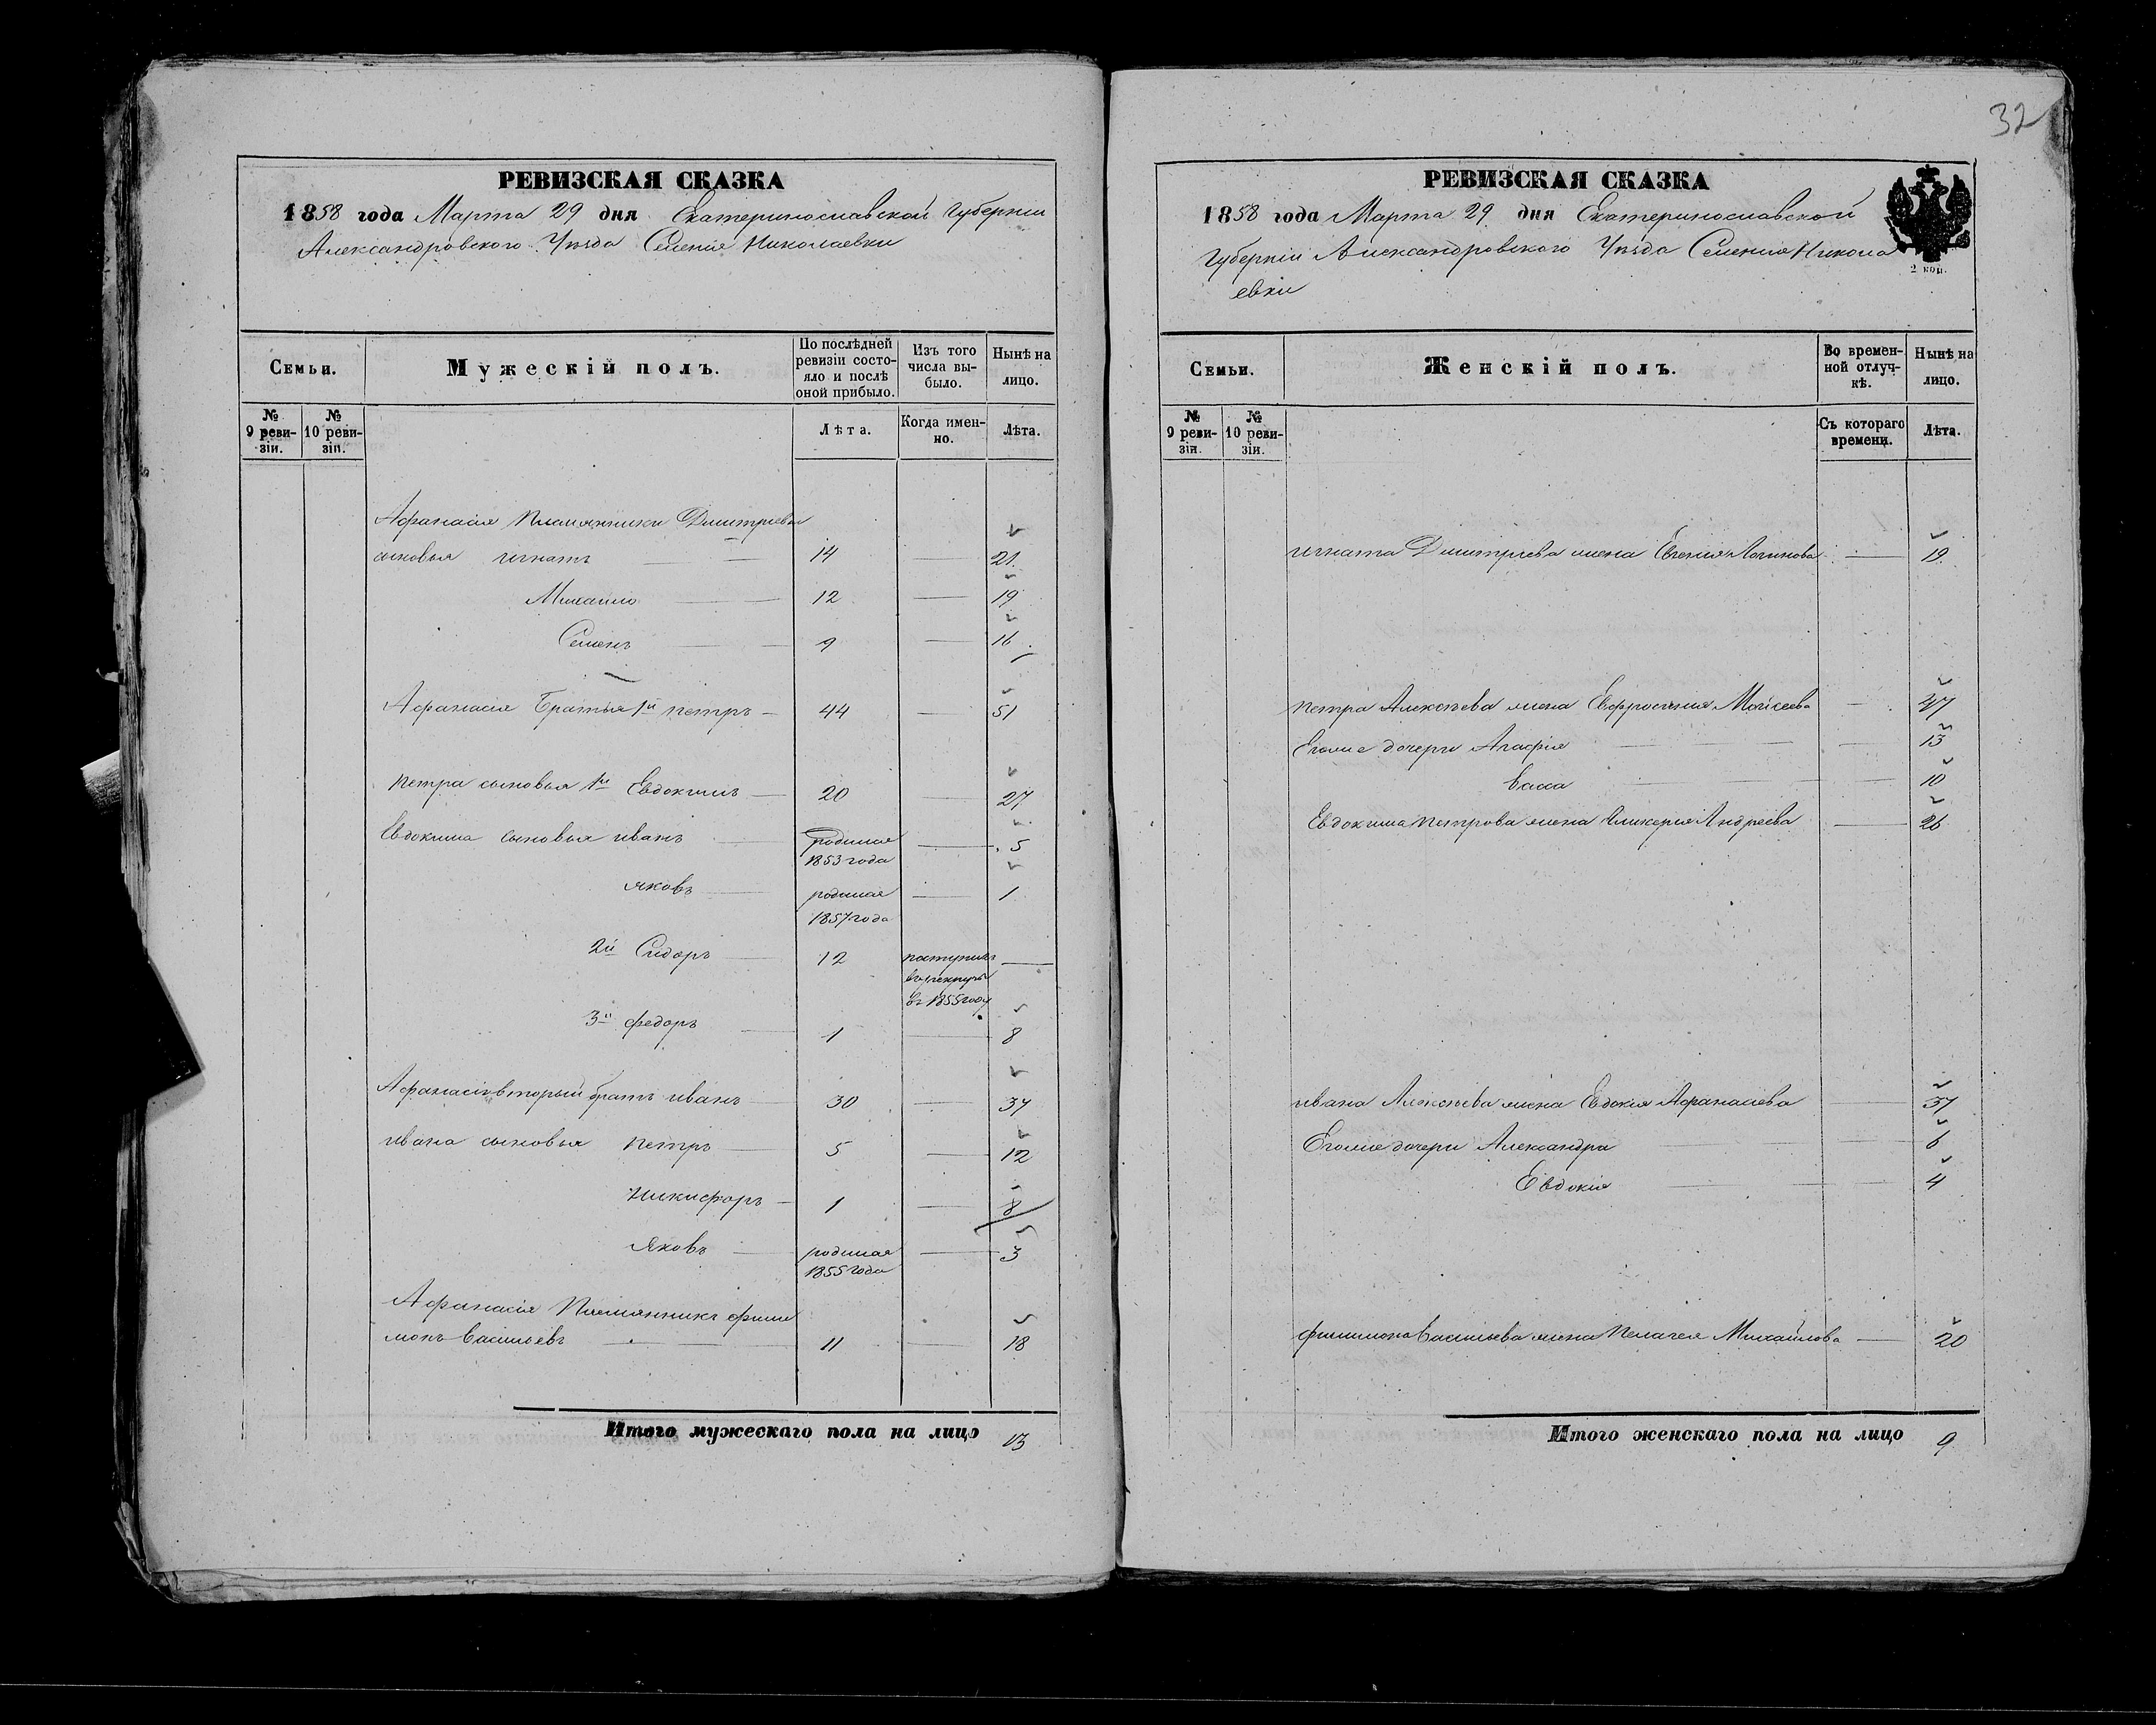 32
РЕВИЗСКАЯ СКАЗКА
1858 года Марта 29 дня Екатеринославской Губерніи
Александровского Уѣзда Селенія Николаевки
Семьи.
Мужескій полъ.
По послѣдней ревизіи состояло и послѣ оной прибыло.
Изъ того числа выбыло.
Нынѣ на лицо.
№ 9 ревизіи.
№ 10 ревизіи.
Лѣта.
Когда именно.
Лѣта.
Афанасія Племянники Димитріевы
сыновья игнатъ 14 — 21
Михаило 12 — 19
Семенъ 9 — 16
Афанасія Братья 1й петръ — 44 — 51
петра сыновья 1й Евдокимъ — 20 — 27
Евдокима сыновья иванъ родился 1853 года — 5
яковъ родился 1857 года — 1
2й Сидоръ 12 поступилъ въ рекруты въ 1855 году —
3й федоръ 1 — 8
Афанасія вторый братъ иванъ 30 — 37
ивана сыновья петръ 5 — 12
Никифоръ — 1 — 8
Яковъ родился 1855 года — 3
Афанасія Племянникъ фили
монъ Васильевъ 11 — 18
Итого мужескаго пола на лицо 13
РЕВИЗСКАЯ СКАЗКА
1858 года Марта 29 дня Екатеринославской
Губерніи Александровского Уѣзда Селенія Никола
евки
2 коп.
Семьи.
Женскій полъ.
Во временной отлучкѣ.
Нынѣ на лицо.
№ 9 ревизіи.
№ 10 ревизіи.
Съ котораго времени.
Лѣта.
игната Димитріева жена Евгенія Логинова — 19
петра Алексѣева жена Евфросинія Моисеева — 47
Егоже дочери Агафія — 13
Васса — 10
Евдокима петрова жена Гликерія Андреева — 26
ивана Алексѣева жена Евдокія Афанасіева — 37
Егоже дочери Александра — 6
Евдокія — 4
филимона Васильева жена Пелагея Михайлова — 20
Итого женскаго пола на лицо 9